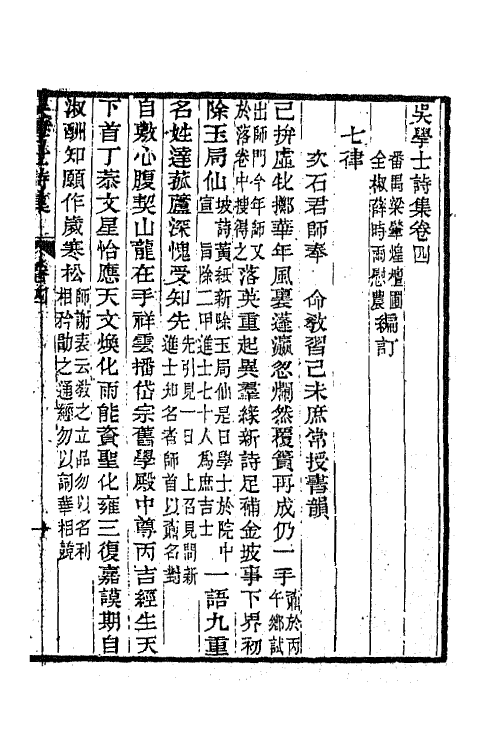 吳學士詩集卷四
番禺梁肇煌檀圃
全椒薛時雨慰農
編訂
七律
次石君師奉　命敎習己未庶常授書韻
己拚虛牝擲華年風裏蓬瀛忽爛然覆簣再成仍一手
肅於丙午鄉試出師門今年師又於落卷中搜得之
落英重起異羣緣新詩足補金坡事下界初除玉局仙
坡詩黃紙新除玉局仙是日學士於院中宣　旨除二甲進士七十人爲庶吉士
一語九重名姓達菰蘆深愧受知先
先引見一日　上召見問新進士知名者師首以肅名對
自敷心腹契山龍在手祥雲播岱宗舊學殿中尊丙吉經生天
下首丁恭文星恰應天文煥化雨能資聖化雍三復嘉謨期自
淑酬知願作歲寒松
師謝表云敎之立品勿以名利相矜勖之通經勿以詞華相競
卷四